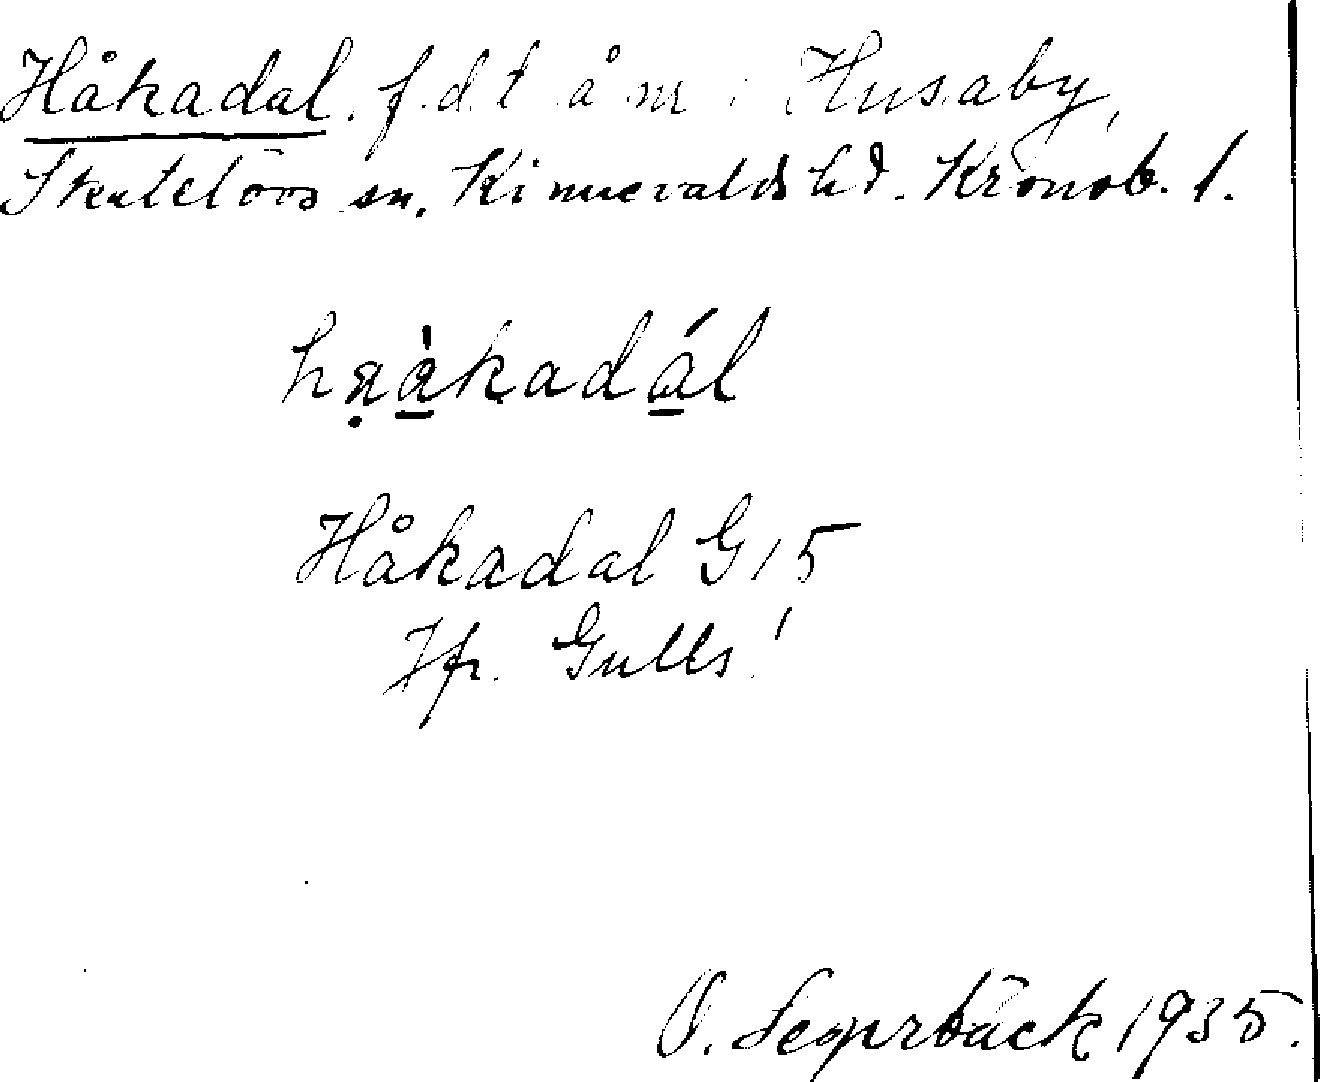 Håkadal. f.d.t å m i Husaby,
Skatelövs sn. Kinnevalds hd. Kronob. l.
Håkadal G 15
Jfr. Gulls!
O. 1935.